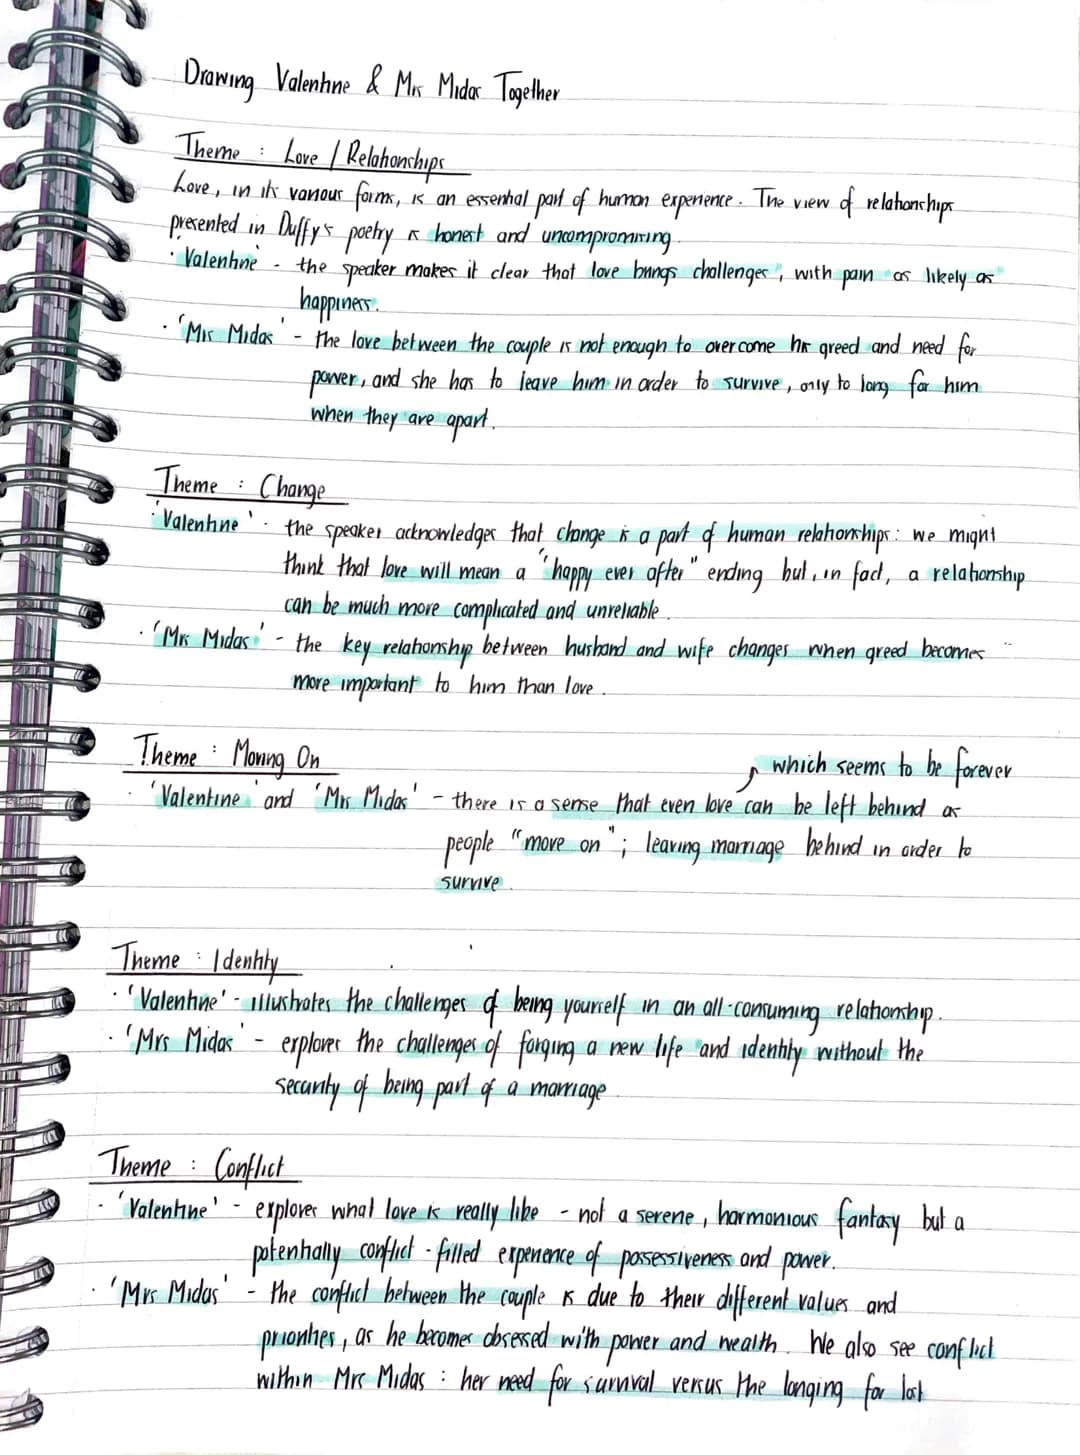 Drawing Valentine & Mrs Midas Together
Theme : Love / Relationships
Love, in its various forms, is an essential part of human experience. The view of relationships
presented in Duffy's poetry is honest and uncompromising.
· Valentine - the speaker makes it clear that love brings challenges, with pain as likely as
happiness.
· 'Mrs Midas' - the love between the couple is not enough to overcome his greed and need for
power, and she has to leave him in order to survive, only to long for him
when they are apart.
Theme : Change
· 'Valentine' - the speaker acknowledges that change is a part of human relationships: we might
think that love will mean a "happy ever after" ending but, in fact, a relationship
can be much more complicated and unreliable.
· 'Mrs Midas' - the key relationship between husband and wife changes when greed becomes
more important to him than love.
Theme : Moving On
which seems to be forever
· 'Valentine' and 'Mrs Midas' - there is a sense that even love can be left behind as
people "move on"; leaving marriage behind in order to
survive.
Theme : Identity
· 'Valentine' - illustrates the challenges of being yourself in an all-consuming relationship.
· 'Mrs Midas' - explores the challenges of forging a new life and identity without the
security of being part of a marriage.
Theme : Conflict
· 'Valentine' - explores what love is really like - not a serene, harmonious fantasy but a
potentially conflict-filled experience of possessiveness and power.
· 'Mrs Midas' - the conflict between the couple is due to their different values and
priorities, as he becomes obsessed with power and wealth. We also see conflict
within Mrs Midas : her need for survival versus the longing for lost